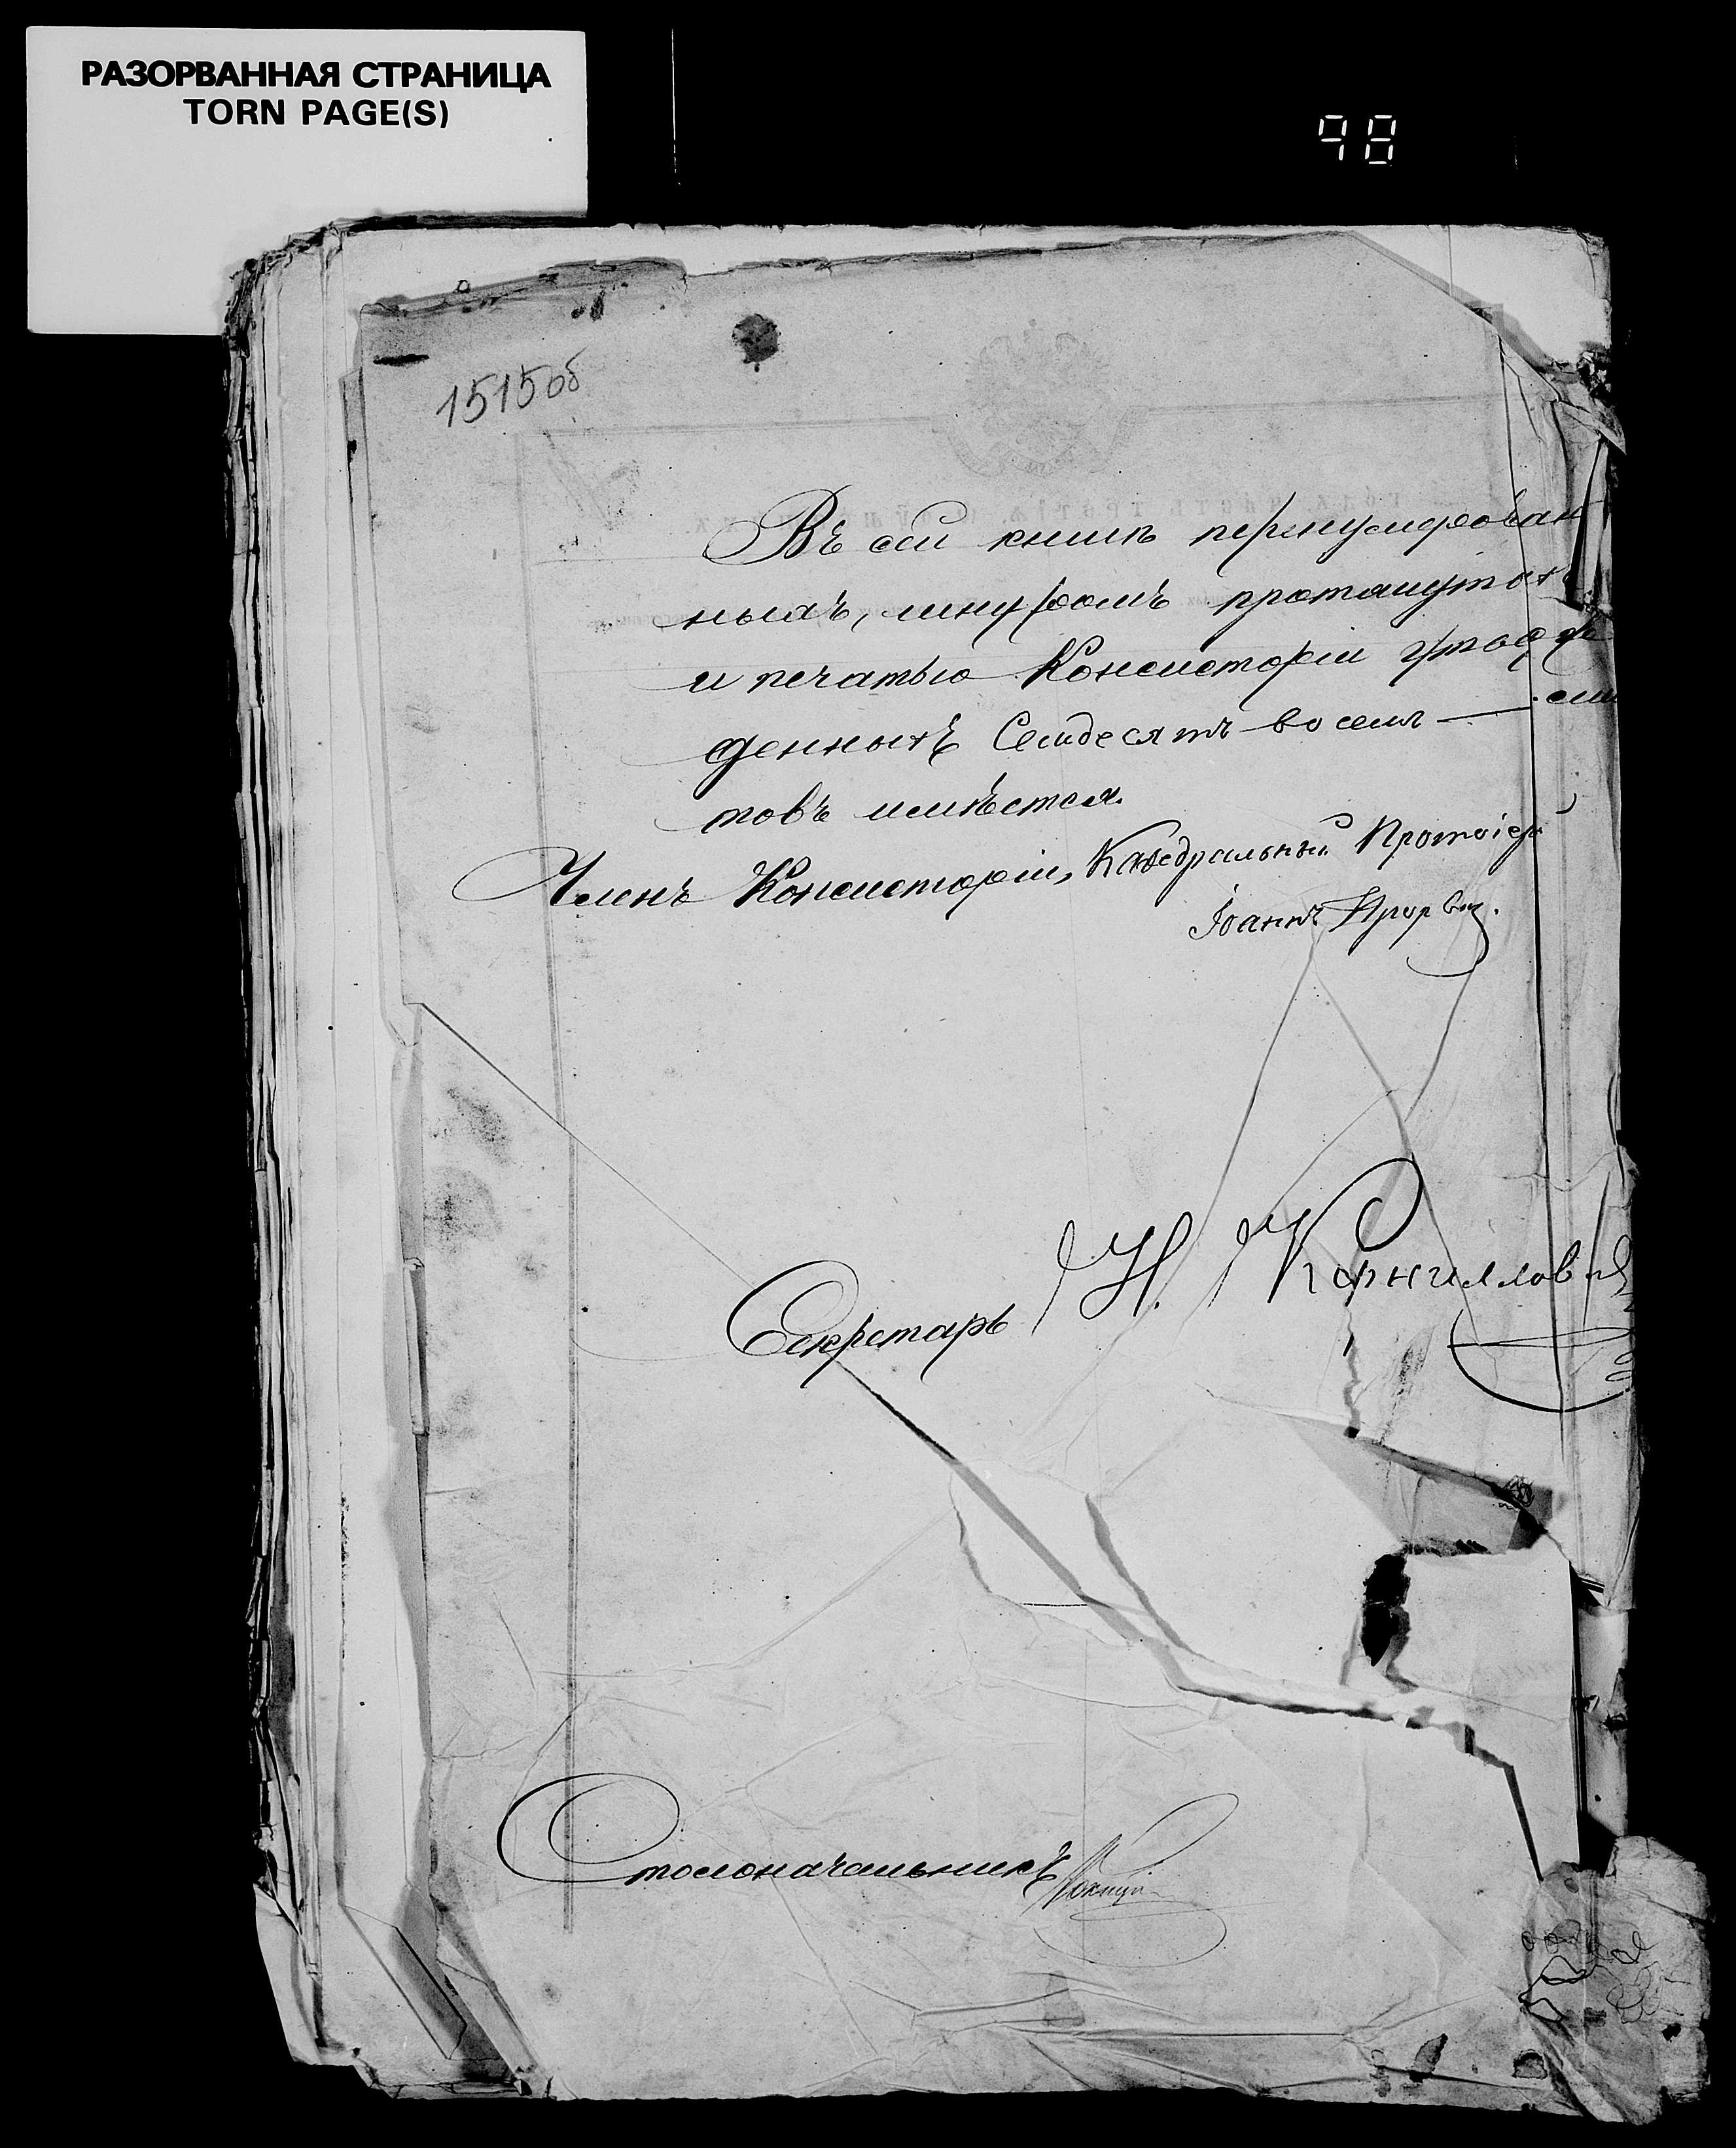 РАЗОРВАННАЯ СТРАНИЦА
TORN PAGE(S)
98
151об
Въ сей книгѣ перенумерован
ныхъ, шнуромъ протянутыхъ
и печатью Консисторіи утверж
денныхъ Семдесятъ восемь — лис
товъ имѣется.
Членъ Консисторіи, Каѳедральный Протоіерей
Іоаннъ
Секретарь Н. Корниллов
Столоначальникъ